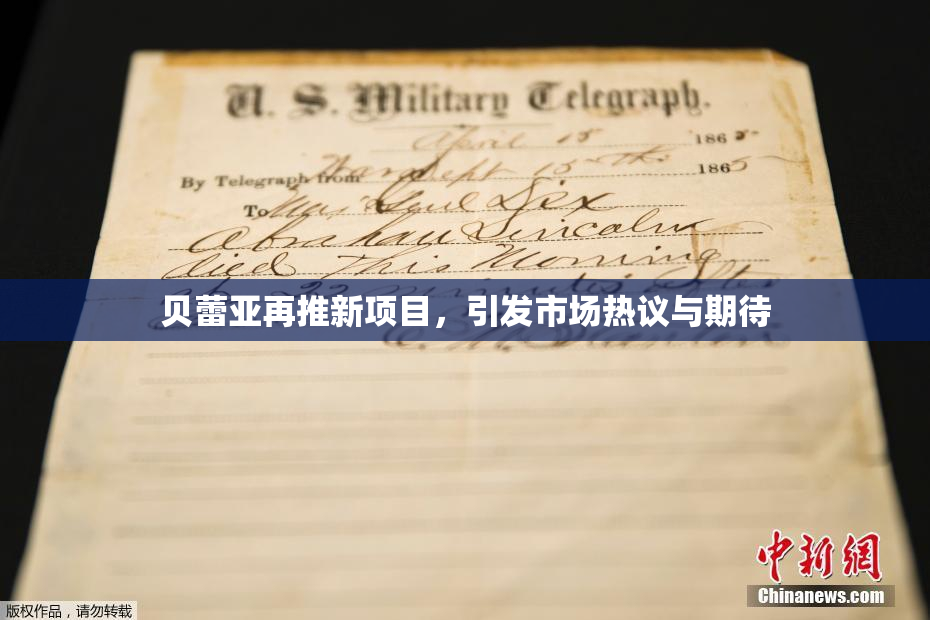 U. S. Military Telegraph.
April 15 1865
By Telegraph from War Dept 15th 1865
To Maj Genl Dix
Abraham Lincoln
died This Morning
at 22 minutes after
贝蕾亚再推新项目，引发市场热议与期待
中新網
Chinanews.com
版权作品，请勿转载